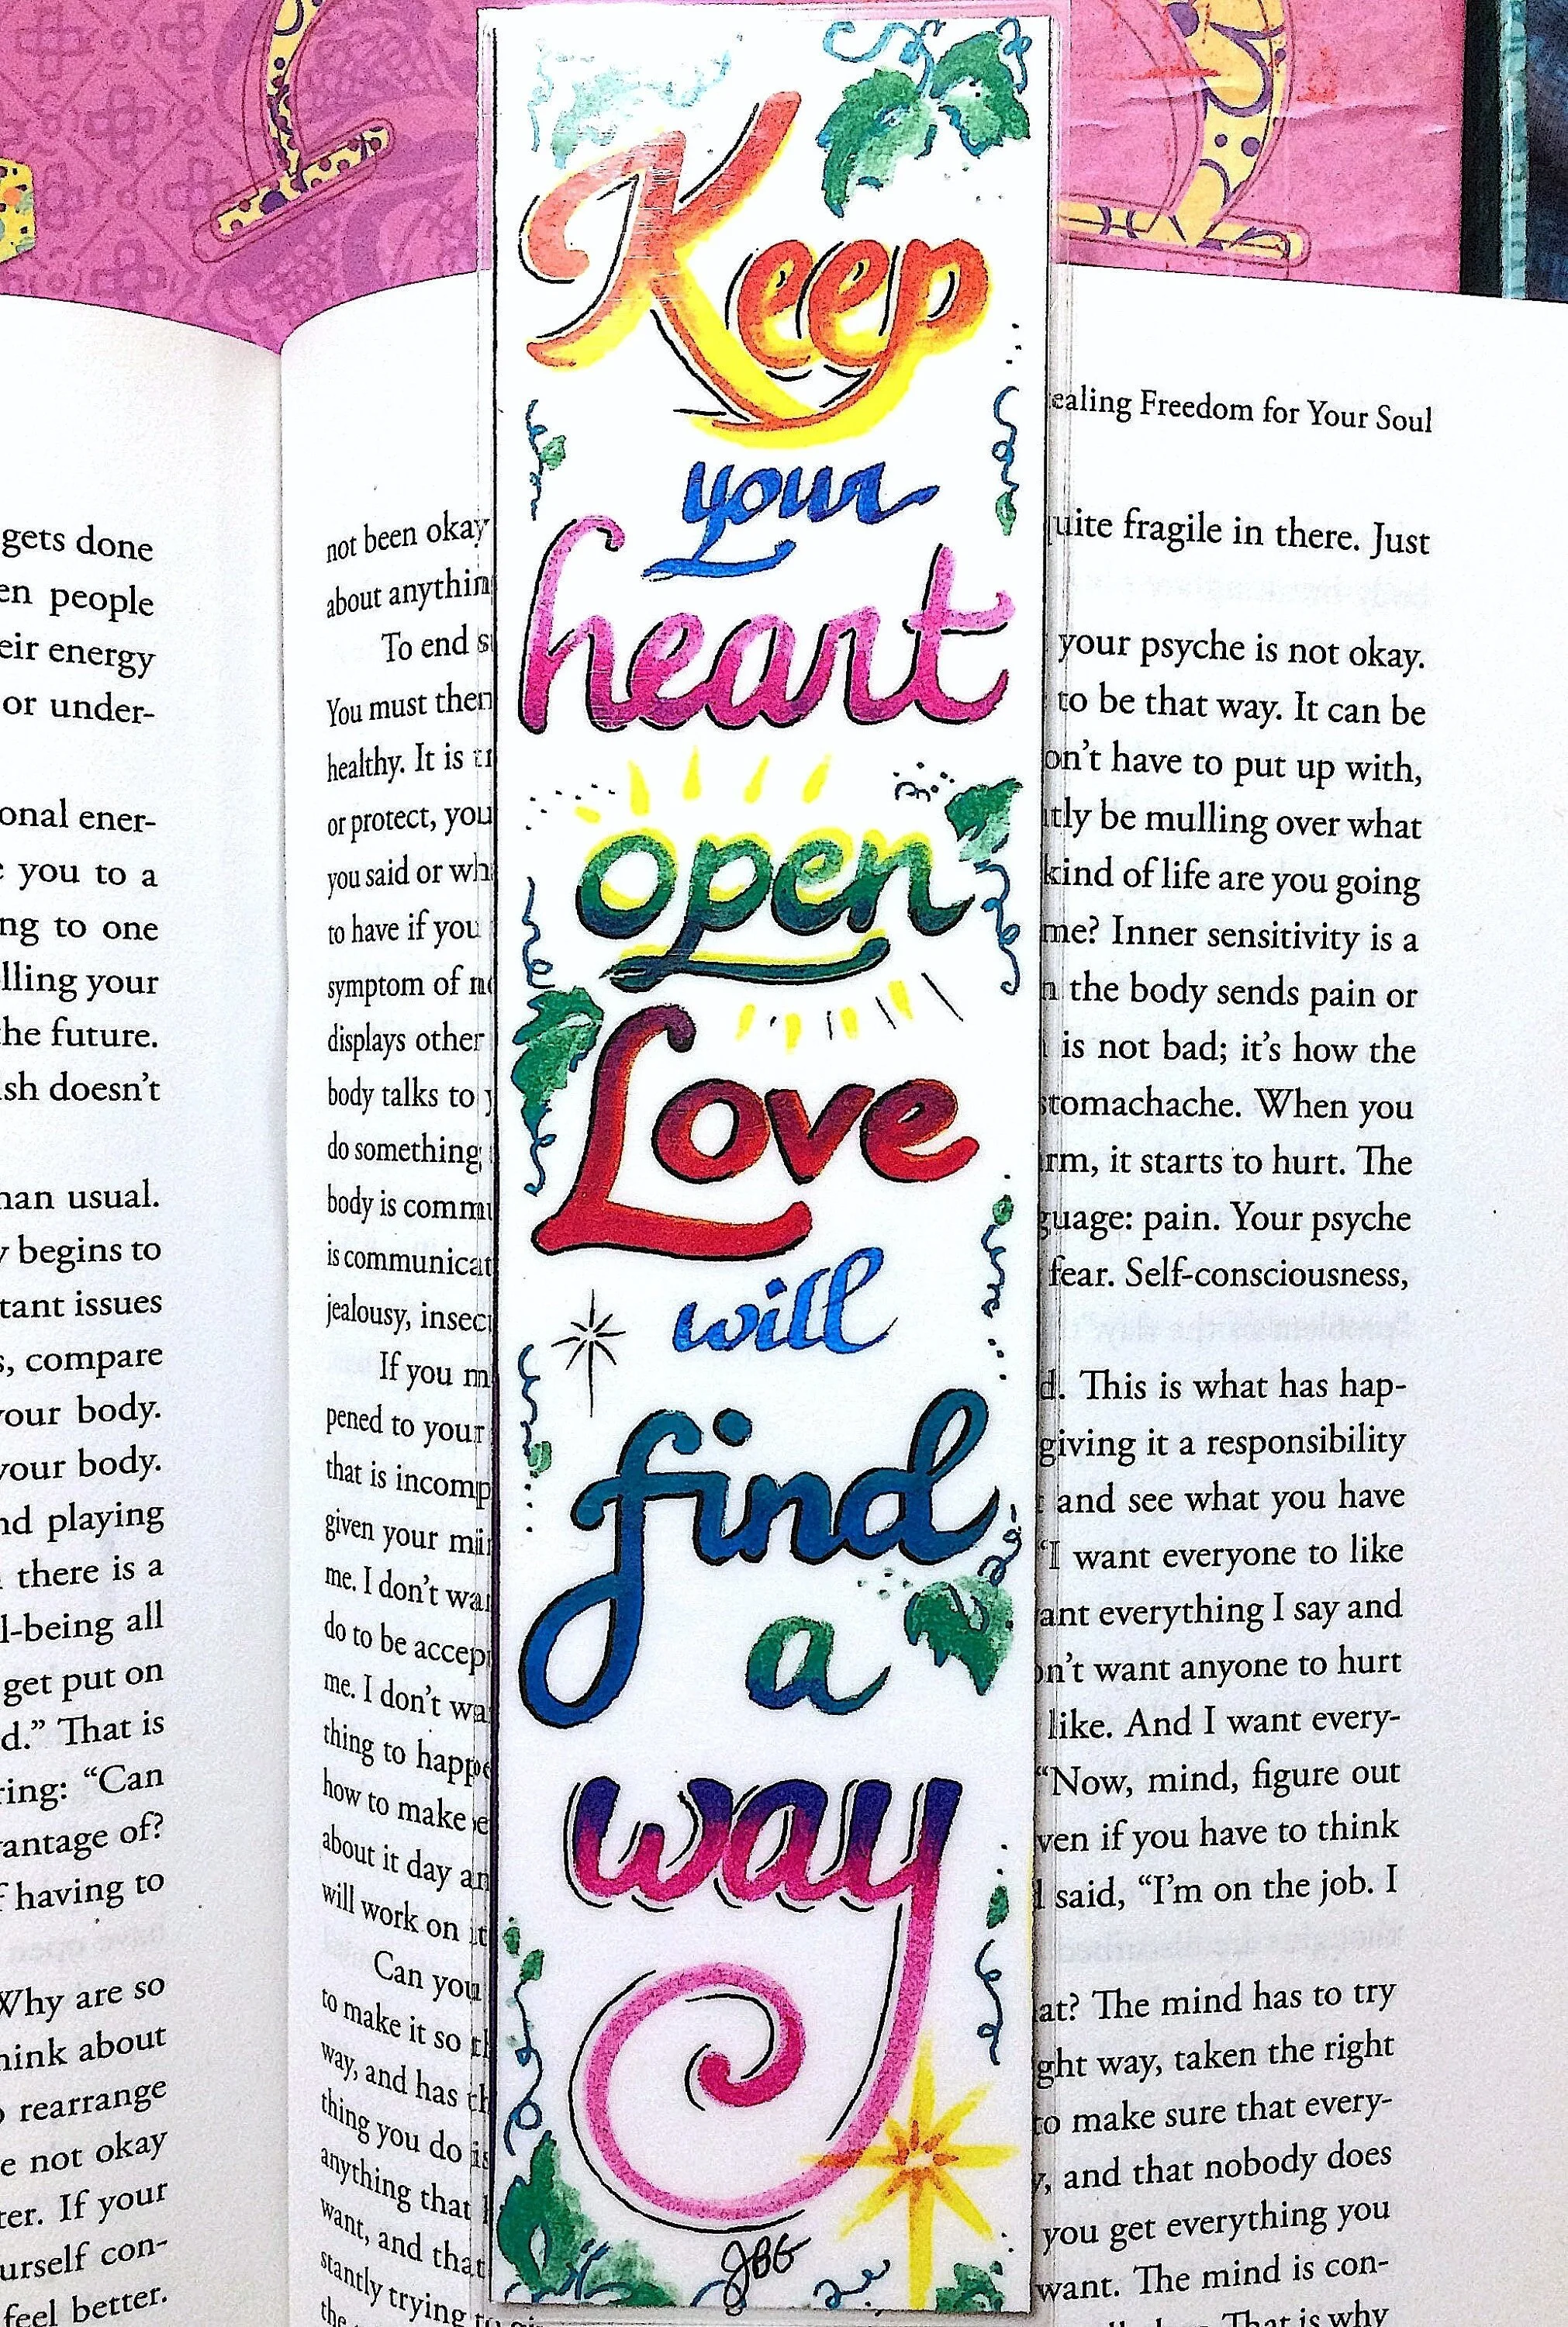 Keep
your
heart
open
Love
will
find
a
way
JBG
Freedom for Your Soul
gets done
people
energy
or under-
ener-
you to a
to one
your
the future.
doesn't
usual.
begins to
issues
compare
your body.
your body.
playing
there is a
being all
get put on
That is
"Can
of?
having to
Why are so
think about
rearrange
not okay
If your
con-
feel better.
not been okay
about
To end
You must
healthy. It is
or protect, you
you said or
to have if you
symptom of
displays other
body talks to
do something
body is
is
jealousy,
If you
pened to your
that is
given your
me. I don't
do to be
me. I don't
thing to
how to make
about it day
will work on
Can you
to make it so
way, and has
thing you do
anything that
want, and that
stantly trying
the
fragile in there. Just
your psyche is not okay.
to be that way. It can be
have to put up with,
be mulling over what
kind of life are you going
me? Inner sensitivity is a
the body sends pain or
is not bad; it's how the
stomachache. When you
it starts to hurt. The
pain. Your psyche
fear. Self-consciousness,
This is what has hap-
giving it a responsibility
and see what you have
"I want everyone to like
everything I say and
want anyone to hurt
like. And I want every-
"Now, mind, figure out
if you have to think
said, "I'm on the job. I
The mind has to try
way, taken the right
to make sure that every-
and that nobody does
you get everything you
want. The mind is con-
That is why